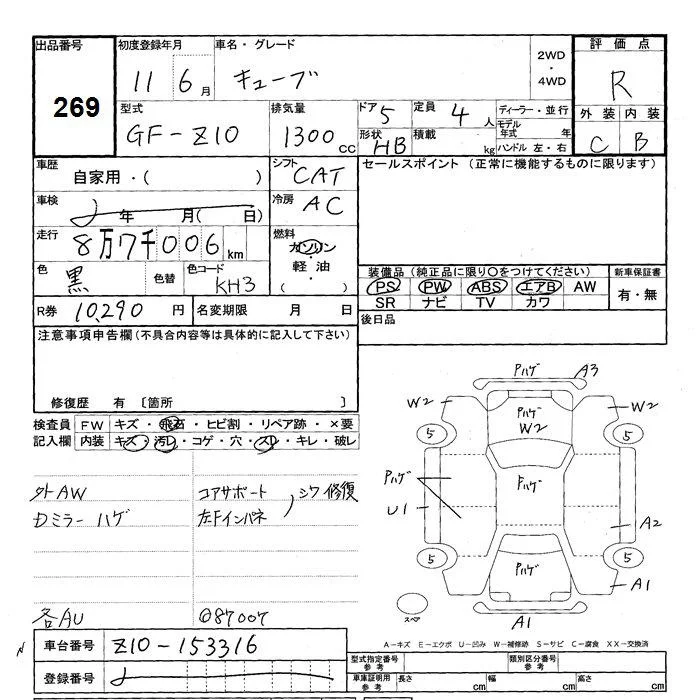 出品番号 初度登録年月 車名・グレード 2WD・4WD 評価点
269 11 6月 キューブ R
型式 排気量 ドア 5 定員 4人 ディーラー・並行 外装 内装
GF-Z10 1300cc 形状 HB 積載 kg モデル年式 年 ハンドル 左・右 C B
車歴 自家用・( ) シフト CAT セールスポイント (正常に機能するものに限ります)
車検 年 月( 日) 冷房 AC
走行 8万7千006km 燃料 ガソリン・軽油・( )
色 黒 色替 色コード KH3 装備品 (純正品に限り○をつけてください) 新車保証書
PS PW ABS エアB AW 有・無
R券 10,290円 名変期限 月 日 SR ナビ TV カワ
注意事項申告欄(不具合内容等は具体的に記入して下さい) 後日品
修復歴 有 〔箇所 〕
検査員記入欄 FW キズ・飛石・ヒビ割・リペア跡・×要
内装 キズ・汚レ・コゲ・穴・スレ・キレ・破レ
Pハゲ A3
W2 Pハゲ W2 W2
5 5
Pハゲ Pハゲ
U1 A2
5 Pハゲ 5
A1
スペア A1
外AW コアサポート シワ修復
Dミラーハゲ 左Fインパネ
各AU @87007
車台番号 Z10-153316
A-キズ E-エクボ U-凹み W-補修跡 S-サビ C-腐食 XX-交換済
登録番号
型式指定番号 参考 類別区分番号 参考
車庫証明用 参考 長さ cm 幅 cm 高さ cm